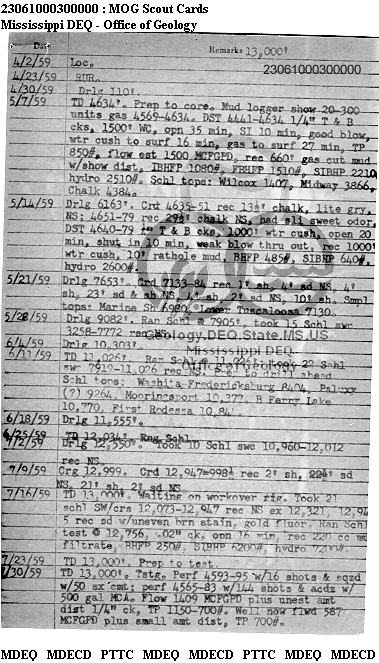 23061000300000 : MOG Scout Cards
Mississippi DEQ - Office of Geology
Date Remarks 13,000'
4/2/59 Loc. 23061000300000
4/23/59 RUR.
4/30/59 Drlg 110'.
5/7/59 TD 4634'. Prep to core. Mud logger show 20-300
units gas 4569-4634. DST 4441-4634 1/4" T & B
cks, 1500' WC, opn 35 min, SI 10 min, good blow,
wtr cush to surf 16 min, gas to surf 27 min, TP
850#, flow est 1500 MCFGPD, rec 660' gas cut mud
w/show dist, IBHFP 1080#, FBHFP 1510#, SIBHP 2210
hydro 2510#. Schl tops: Wilcox 1407, Midway 3866,
Chalk 4384.
5/14/59 Drlg 6163'. Crd 4635-51 rec 13½' chalk, lite gry,
NS; 4651-79 rec 29½' chalk NS, had sli sweet odor,
DST 4640-79 T & B cks, 1000' wtr cush, open 20
min, shut in 10 min, weak blow thru out, rec 1000'
wtr cush, 10' rathole mud, BHFP 485#, SIBHP 640#,
hydro 2600#.
5/21/59 Drlg 7653'. Crd 7133-84 rec 1' sh, 4' sd NS, 4'
sh, 23' sd & sh NS, 4' sh, 2' sd NS, 10' sh. Smpl
tops: Marine Sh 6980, Lower Tuscaloosa 7130.
5/28/59 Drlg 9082'. Ran Schl @ 7905', took 15 Schl swc
3258-7772 rec NS.
Geology.DEQ.State.MS.US
6/4/59 Drlg 10,303'.
Mississippi DEQ
6/11/59 TD 11,026'. Ran Schl @ 11,026', 22 Schl
Office of Geology
swc 7919-11,026 rec NS. Prep to drill ahead
Schl tops: Washita-Fredericksburg 8404, Paluxy
(?) 9264, Mooringsport 10,377, B Ferry Lake
10,770, First Rodessa 10,84
6/18/59 Drlg 11,555'.
6/25/59 TD 12,034'. Rng Schl.
7/2/59 Drlg 12,550'. Took 10 Schl swc 10,960-12,012
rec NS.
7/9/59 Crg 12,999. Crd 12,947-998½ rec 2' sh, sd
NS, 21' sh, 2' sd NS.
7/16/59 TD 13,000'. Waiting on workover rig. Took 21
schl SW/crs 12,073-12,947 rec NS ex 12,321, 12,94
5 rec sd w/uneven brn stain, gold fluor. Ran Schl
test @ 12,756, .02" ck, opn 16 min, rec 220 cc mud
filtrate, BHFP 250#, SIBHP 6200#, hydro 7200#.
7/23/59 TD 13,000'. Prep to test.
7/30/59 TD 13,000'. Tstg. Perf 4593-95 w/16 shots & sqzd
w/50 sx cmt; perf 4565-83 w/144 shots & acdz w/
500 gal MCA. Flow 1409 MCFGPD plus unest amt
dist 1/4" ck, TP 1150-700#. Well now flwd 587
MCFGPD plus small amt dist, TP 700#.
MDEQ MDECD PTTC MDEQ MDECD PTTC MDEQ MDECD